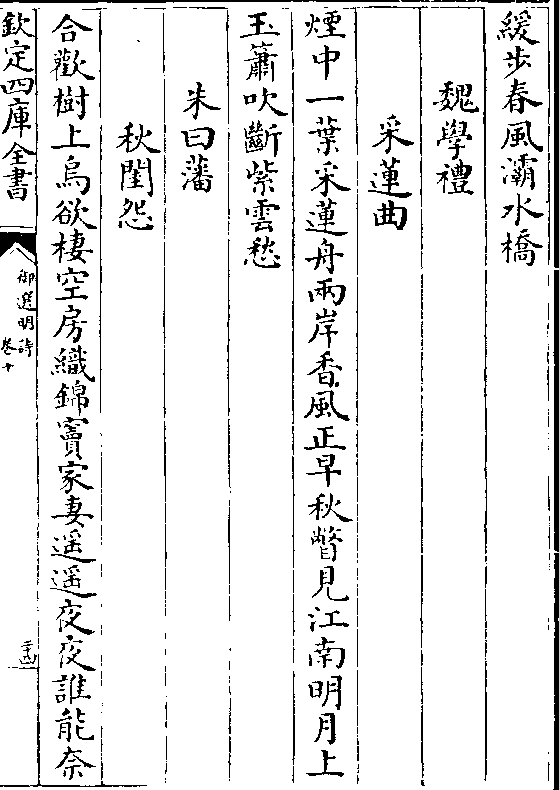 緩步春風灞水橋
魏學禮
采蓮曲
煙中一葉采蓮舟兩岸香風正早秋瞥見江南明月上
玉簫吹斷紫雲愁
朱曰藩
秋閨怨
合歡樹上烏欲棲空房織錦竇家妻遥遥夜夜誰能奈
欽定四庫全書
御選明詩
卷十
二十四